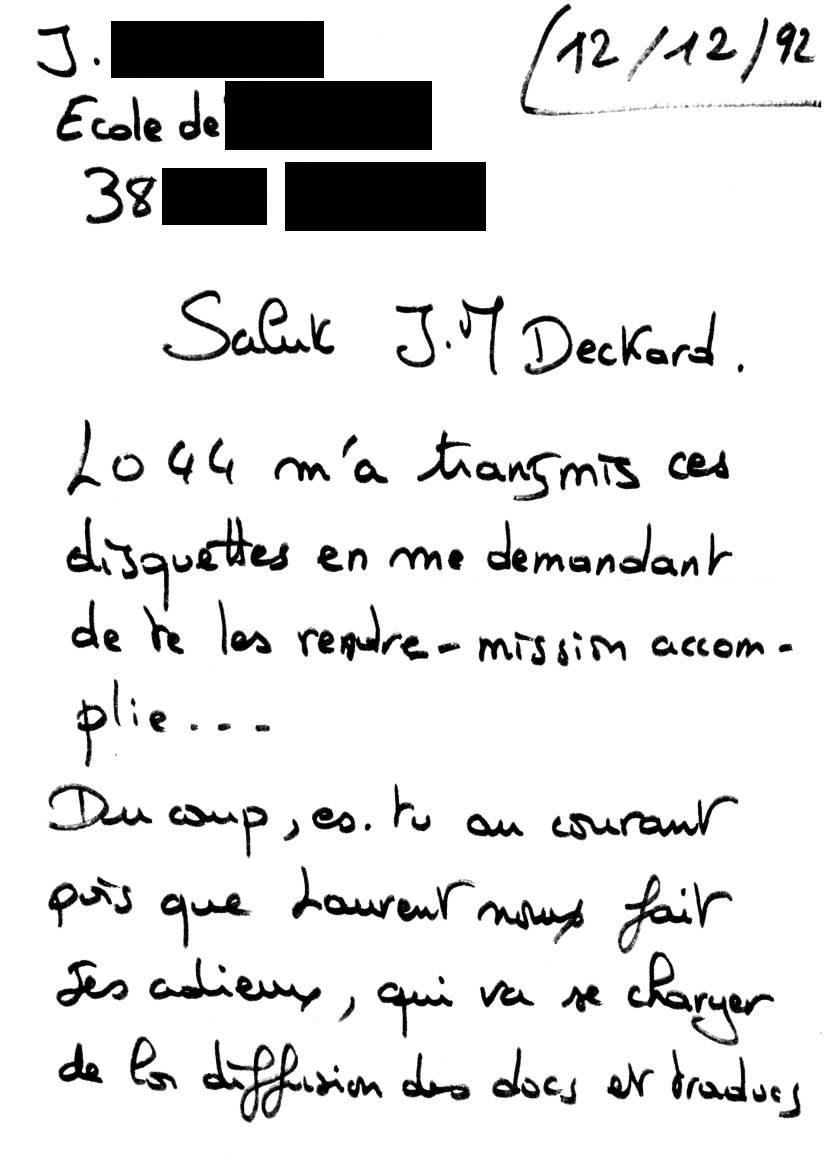 J.
(12/12/92
Ecole de
38
Salut J.M Deckard.
Lo44 m'a transmis ces
disquettes en me demandant
de te les rendre - mission accom-
plie...
Du coup, es-tu au courant
puis que Laurent nous fait
ses adieux, qui va se charger
de la diffusion des docs et traducs